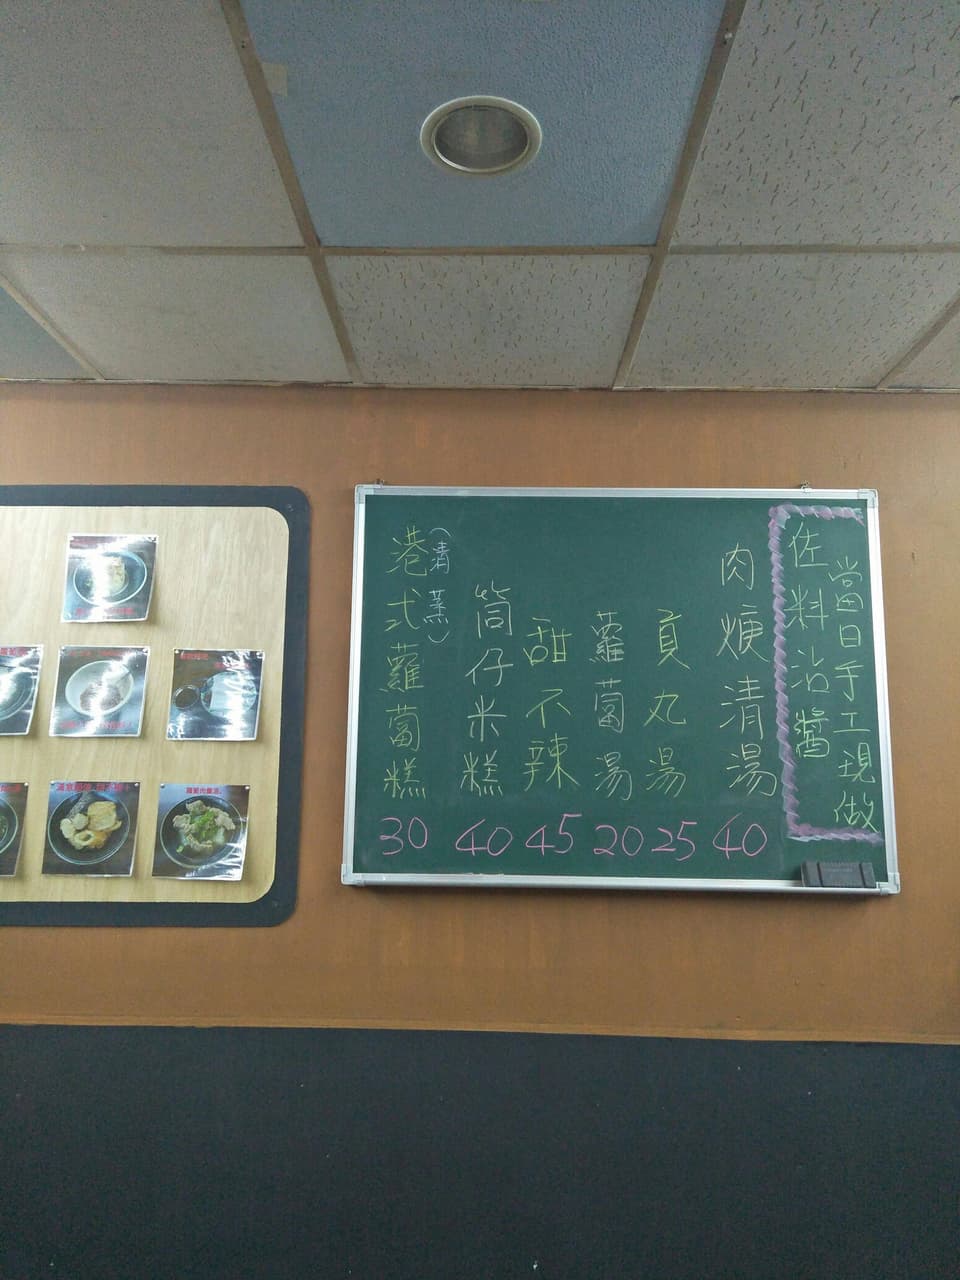 當日手工現做
佐料沾醬
肉焿清湯 40
貢丸湯 25
蘿蔔湯 20
甜不辣 45
筒仔米糕 40
港式蘿蔔糕(清蒸) 30